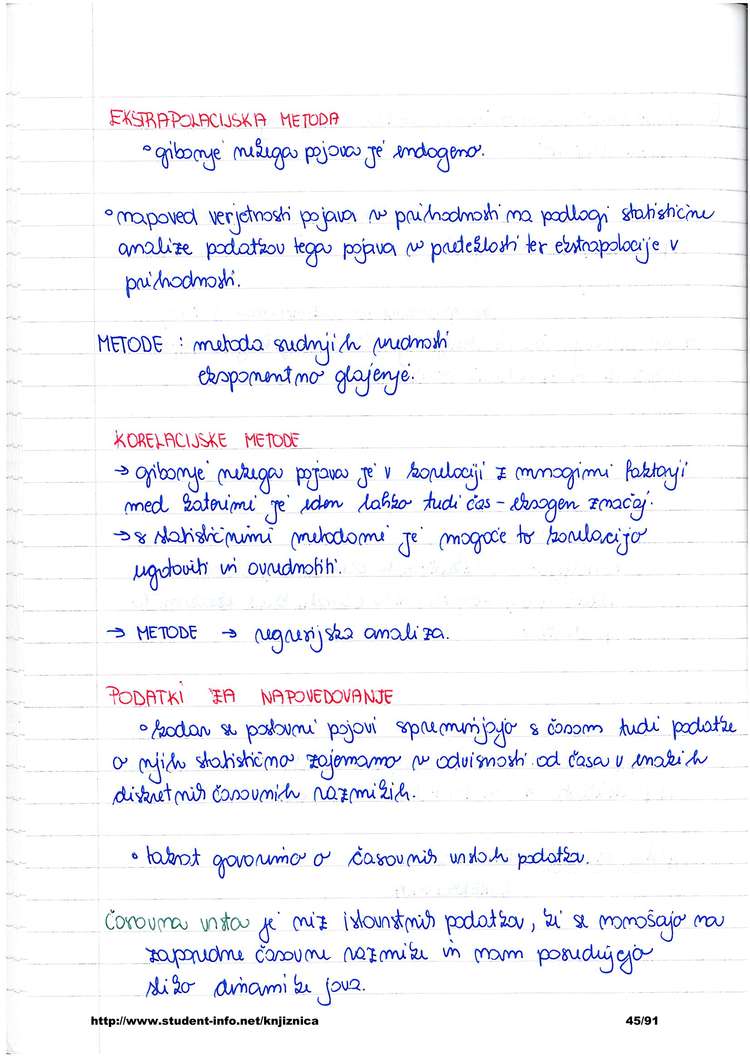 EKSTRAPOLACIJSKA METODA
° gibanje nekega pojava je endogeno.
° napoved verjetnosti pojava v prihodnosti na podlogi statistične
analize podatkov tega pojava v preteklosti ter ekstrapolacije v
prihodnosti.
METODE : metoda srednjih vrednosti
eksponentno glajenje.
KORELACIJSKE METODE
→ gibanje nekega pojava je v korelaciji z mnogimi faktorji
med katerimi je eden lahko tudi čas - eksogen značaj.
→ s statističnimi metodami je mogoče to korelacijo
ugotoviti in ovrednotiti.
→ METODE → regresijska analiza.
PODATKI ZA NAPOVEDOVANJE
° kadar se poslovni pojavi spreminjajo s časom tudi podatke
o njih statistično zajemamo v odvisnosti od časa v enakih
diskretnih časovnih razmikih.
• takrat govorimo o časovnih vrstah podatkov.
Časovna vrsta je niz istovrstnih podatkov, ki se nanašajo na
zaporedne časovne razmike in nam posredujejo
sliko dinamike java.
http://www.student-info.net/knjiznica 45/91